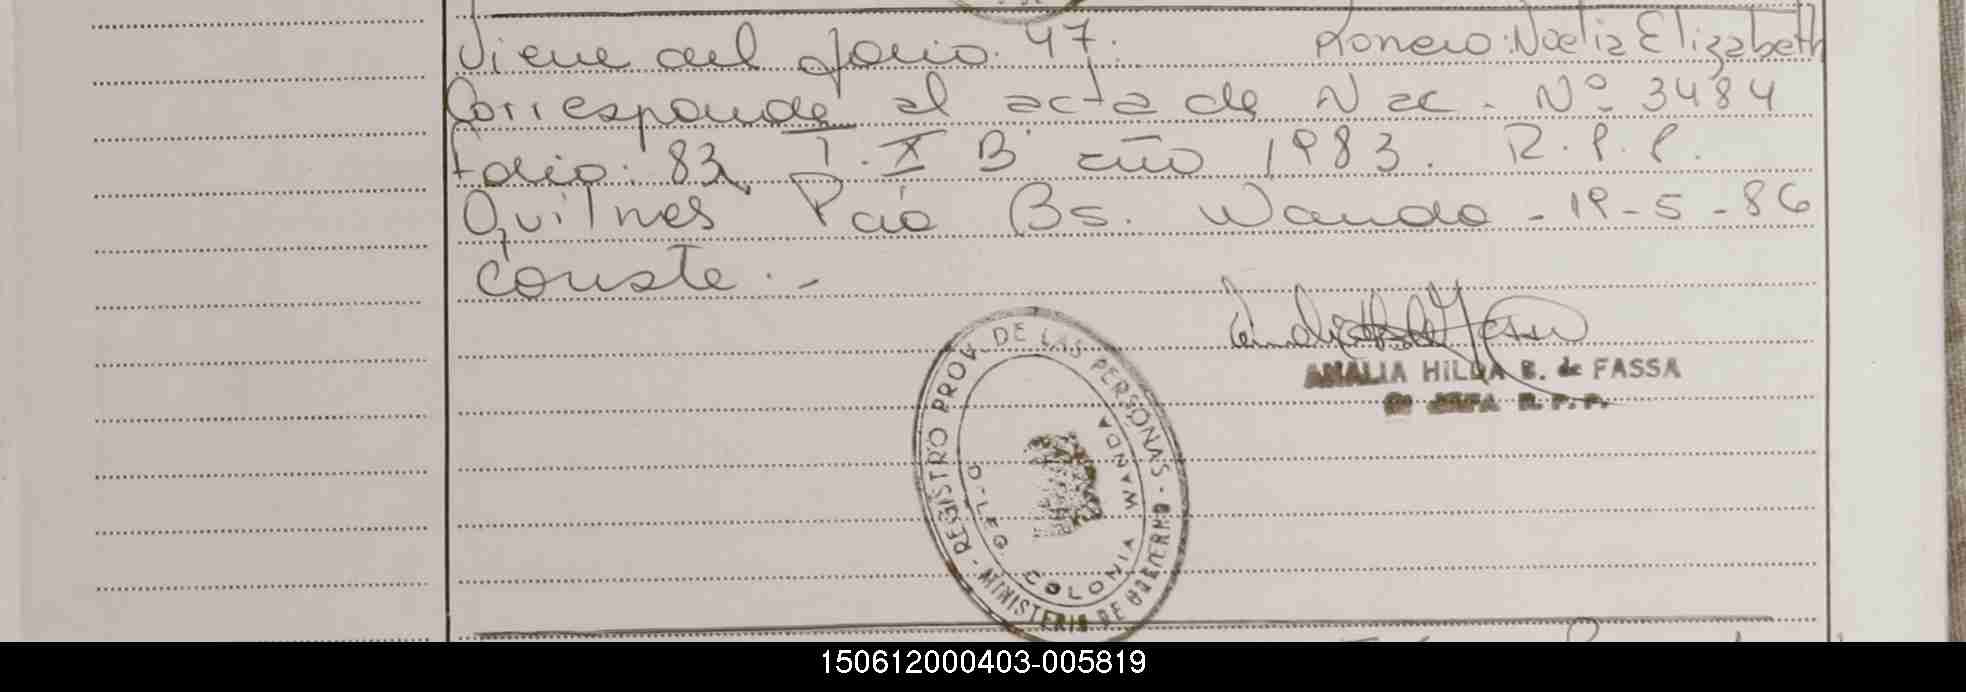 Viene del folio. 47. Romero: Noelia Elizabeth
Corresponde al acta de Nac - Nº 3484
folio: 83 T. X B año 1983. R.P.P.
Quilmes Pcia Bs. Wanda - 19-5-86
conste.-
ANALIA HILDA B. de FASSA
JEFA R.P.P.
REGISTRO PROV. DE LAS PERSONAS - MINISTERIO DE GOBIERNO -
DELEG. COLONIA WANDA
150612000403-005819